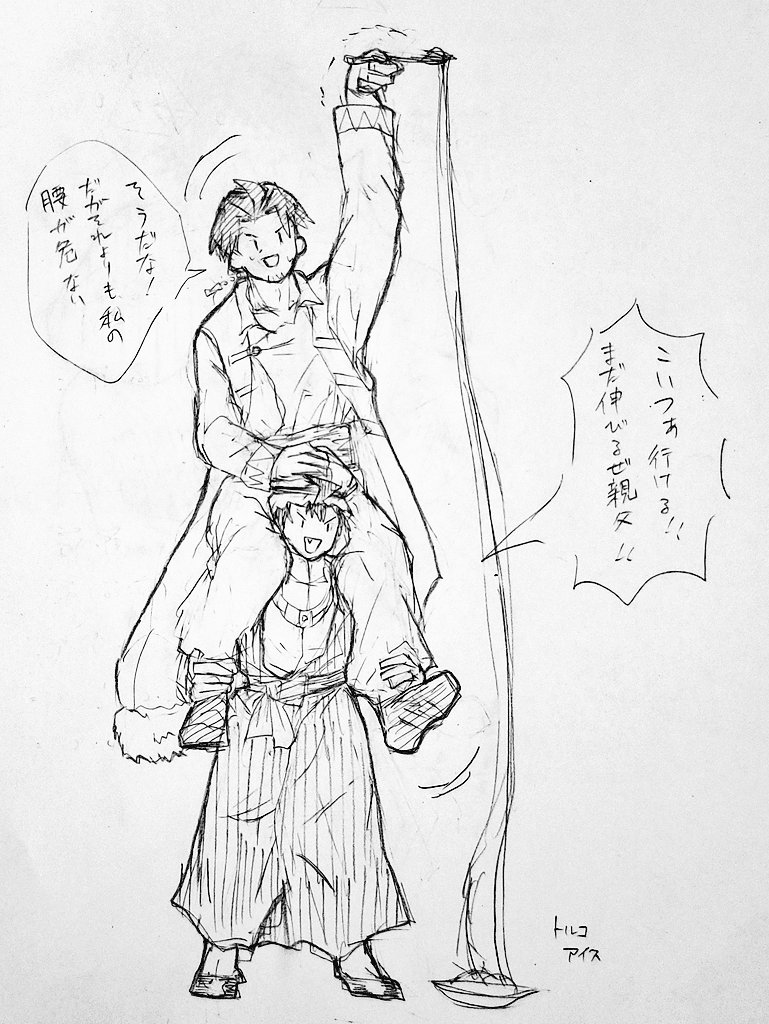 こいつぁ行ける!!
まだ伸びるぜ親父!!
そうだな!
だがそれよりも私の
腰が危ない
トルコ
アイス